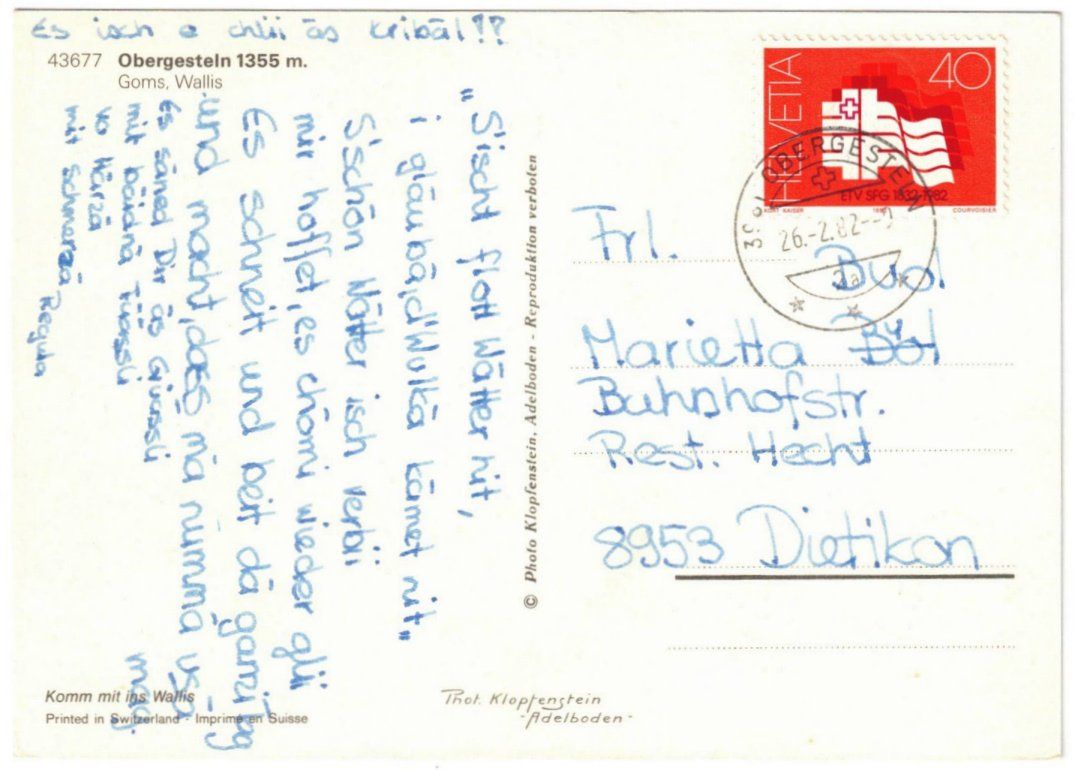 Es isch e chlii äs Kribäl!!
43677 Obergesteln 1355 m.
Goms, Wallis
"S'ischt flott Wätter hit,
i gläubä, d'Wulkä kämet nit"
S'schön Wätter isch verbii
mir hoffet, es chömi wieder glii
Es schneit und beit dä ganzi Tag
und macht, dass mä nümma usä mag.
Es säned Dir äs Grüessli
mit beidnä Füessli
vo Härzä
mit schmerzä Regula
Komm mit ins Wallis
Printed in Switzerland - Imprimé en Suisse
© Photo Klopfenstein, Adelboden - Reproduktion verboten
Phot. Klopfenstein
-Adelboden-
HELVETIA
40
ETV SFG 1832-1982
KURT KAISER 1982 COURVOISIER
OBERGESTELN
26.-2.82--9
a
Frl.
Buol
Marietta Böl
Bahnhofstr.
Rest. Hecht
8953 Dietikon